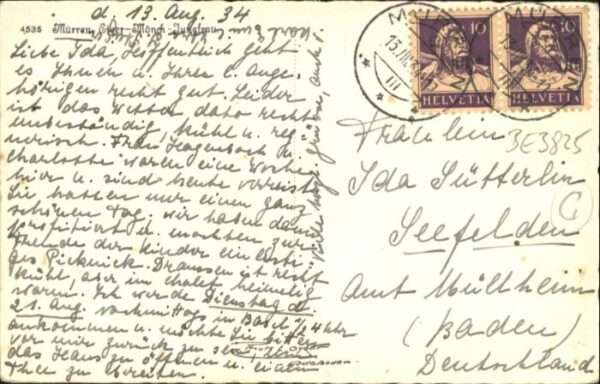 d. 13. Aug. 34
4535 Mürren, Eiger-Mönch-Jungfrau
Liebe Ida, Hoffentlich geht
es Ihnen u. Ihren l. Ange-
hörigen recht gut. Leider
ist das Wetter dato recht
unbeständig, kühl u. reg-
nerisch. Frau Hagenbach u.
Charlotte waren eine Woche
hier u. sind heute verreist
Sie hatten nur einen ganz
schönen Tag. wir haben dann
profitiert u. machten zur
Freude der Kinder ein lusti-
ges Picknick. Draussen ist recht
kühl, aber im chalet heimelig
warm. Ich werde Dienstag d.
21. Aug. vormittags in Basel 1/4 Uhr
ankommen u. möchte Sie bitten
vor mir zurück zu sein,
das Haus zu öffnen u. einen
Thee zu bereiten.
Viele herzl. Grüsse, auch v.
MÜRREN
13. VIII. 34
10 10
HELVETIA HELVETIA
Fräulein
BE3825
Ida Sütterlin
C
Seefelden
Amt Müllheim
(Baden)
Deutschland